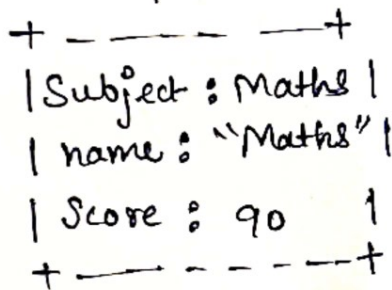 + - — — — +
| Subject : Maths |
| name : "Maths" |
| Score : 90 |
+ — - - - — +